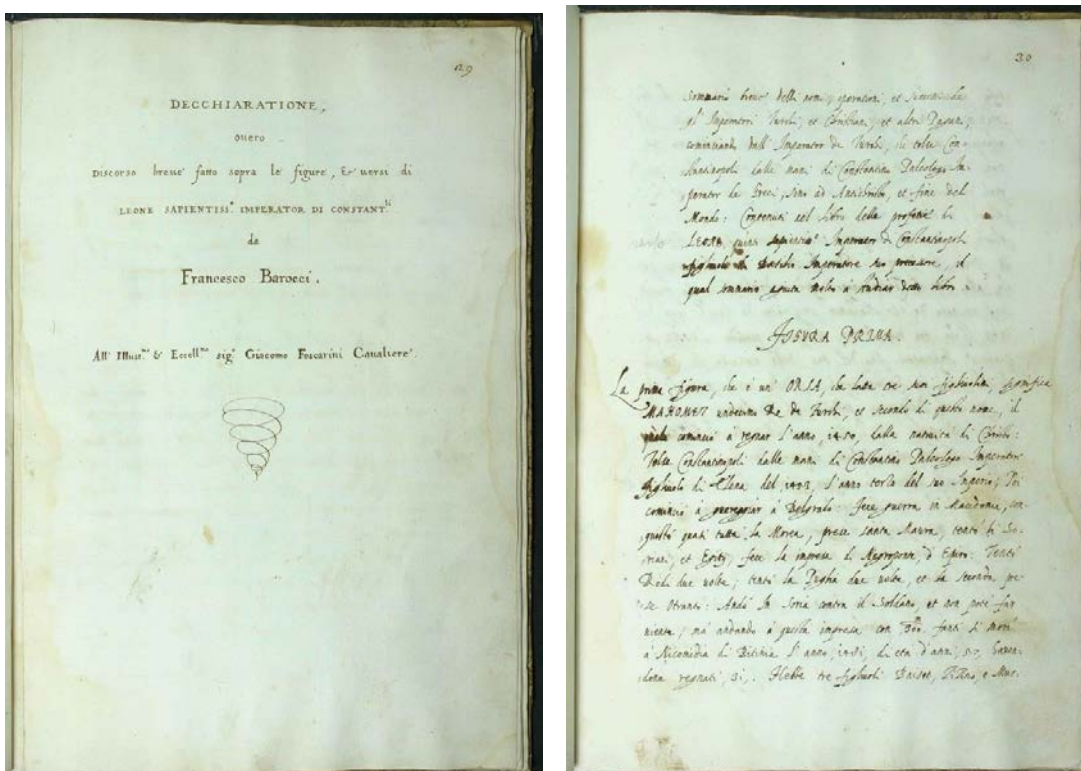 29
DECCHIARATIONE,
ouero
Discorso breue fatto sopra le figure, & uersi di
LEONE SAPIENTISS.º IMPERATOR DI CONSTANT.li
da
Francesco Barocci.
All' Illust.mo & Eccell.mo sig.r Giacomo Foscarini Caualiere.
30
Sommario breue delli nomi, operationi, et
gl' Imperatori Turchi, et Christiani, et altri Pagani,
cominciando dall' Imperator de Turchi, che tolse Con-
stantinopoli dalle mani di Constantino Paleologo Im-
perator de Greci, sino ad Antichristo, et fine del
Mondo: Contenuti nel libro della profetie di
LEONE, sapientiss.º Imperator di Constantinopoli
figliuolo di Basilio Imperatore suo precessore, il
qual sommario aiuta molto a studiar detto libro.
FIGURA PRIMA.
La prima figura, che è un' ORSA, che latta tre suoi figliuolini, significa
MAHOMET undecimo Re de Turchi, et secondo di questo nome, il
quale cominciò à regnar l'anno, 1450, dalla natiuità di Christo:
Tolse Constantinopoli dalle mani di Constantino Paleologo Imperator
figliuolo di Elena del 1453, l'anno terzo del suo Imperio; Poi
cominciò à guereggiar à Belgrado: Fece guerra in Macedonia, con-
quistò quasi tutta la Morea, prese santa Maura, tentò di
et fece la impresa di Negroponte, d' Epiro: Tentò
Rodi due uolte; tentò la Puglia due uolte, et la seconda pre-
se Otranto: Andò in Soria contra il Soldano, et non potè far
niente, mà andando à quella impresa con fanti si morì
a Nicomedia di Bitinia l'anno, 1481, di età d'anni, 57, hauen-
done regnati, 31,. Hebbe tre figliuoli Baiset, e Mus-